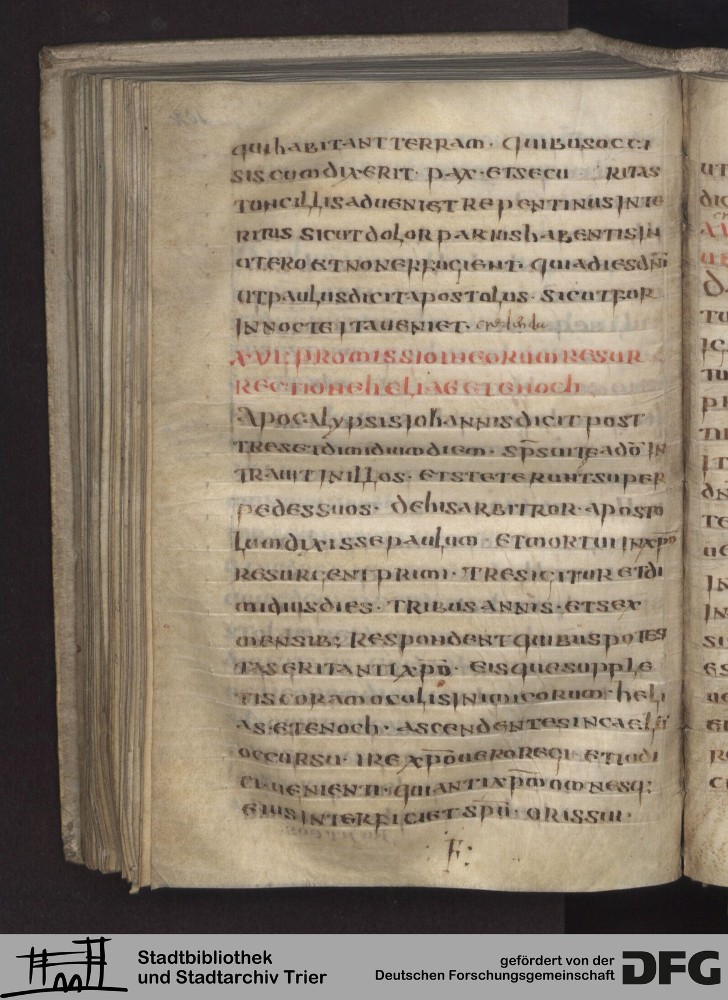 qui habitant terram· quibus occi
sis cum dixerit· pax· et secu ritas
tunc illis adueniet repentinus inte
ritus sicut dolor parius habentis in
utero et non effugient· quia dies dn̄i
ut paulus dicit apostolus· sicut fur
in nocte ita ueniet·
XVI: promissio ineorum resur
rectione heliae et enoch
Apocalypsis iohannis dicit post
tres et dimidium diem· sp̄s uite a dō in
trauit in illos· et steterunt super
pedes suos· de his arbitror aposto
lum dixisse paulum· et mortui in xp̄o
resurgent primi· tres igitur et di
midius dies· tribus annis· et sex
mensib; respondent quibus potes
tas erit antixp̄o· eisque supple
tis coram oculis inimicorum· heli
as· et enoch· ascendentes in caelū
occursu· ire xp̄o uero regi· et iudi
ci uenienti· qui antixp̄m omnesq;
eius interficiet sp̄ū· oris sui·
F:
Stadtbibliothek
und Stadtarchiv Trier
gefördert von der
Deutschen Forschungsgemeinschaft
DFG